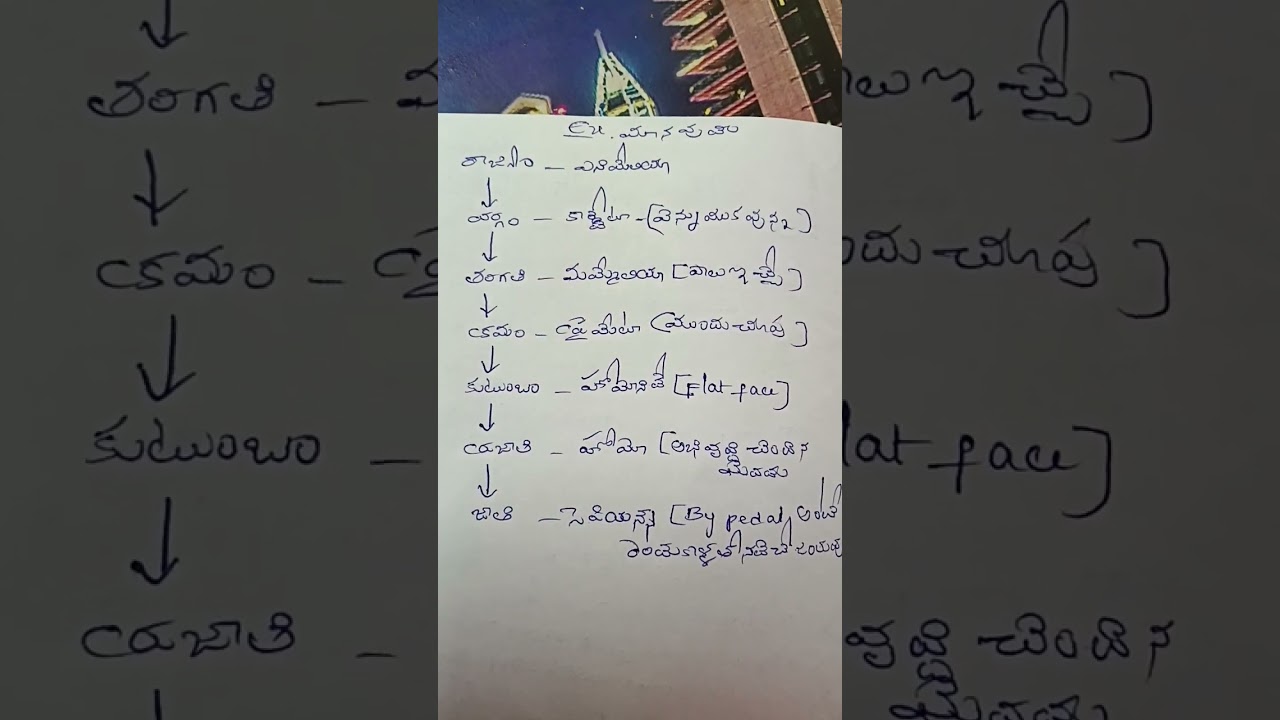 Ex. మానవుతు
రాజ్యం – ఎనిమేలియా
వర్గం – కార్డేటా - [వెన్నుముకవున్న]
తరగతి – మమ్మేలియా [పాలు ఇచ్చే]
క్రమం – ప్రైమేటా [ముందుచూపు]
కుటుంబం – హోమోనిడే [Flat face]
ప్రజాతి – హోమో [అభివృద్ధి చెందిన
జాతి – సెపియన్స్ [By pedal, అంటే
రెండుకాళ్ళతో నడిచే జంతువు